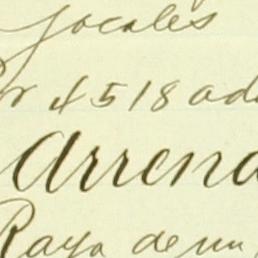 Jacales
4518 ado
Arrend
Raya de un